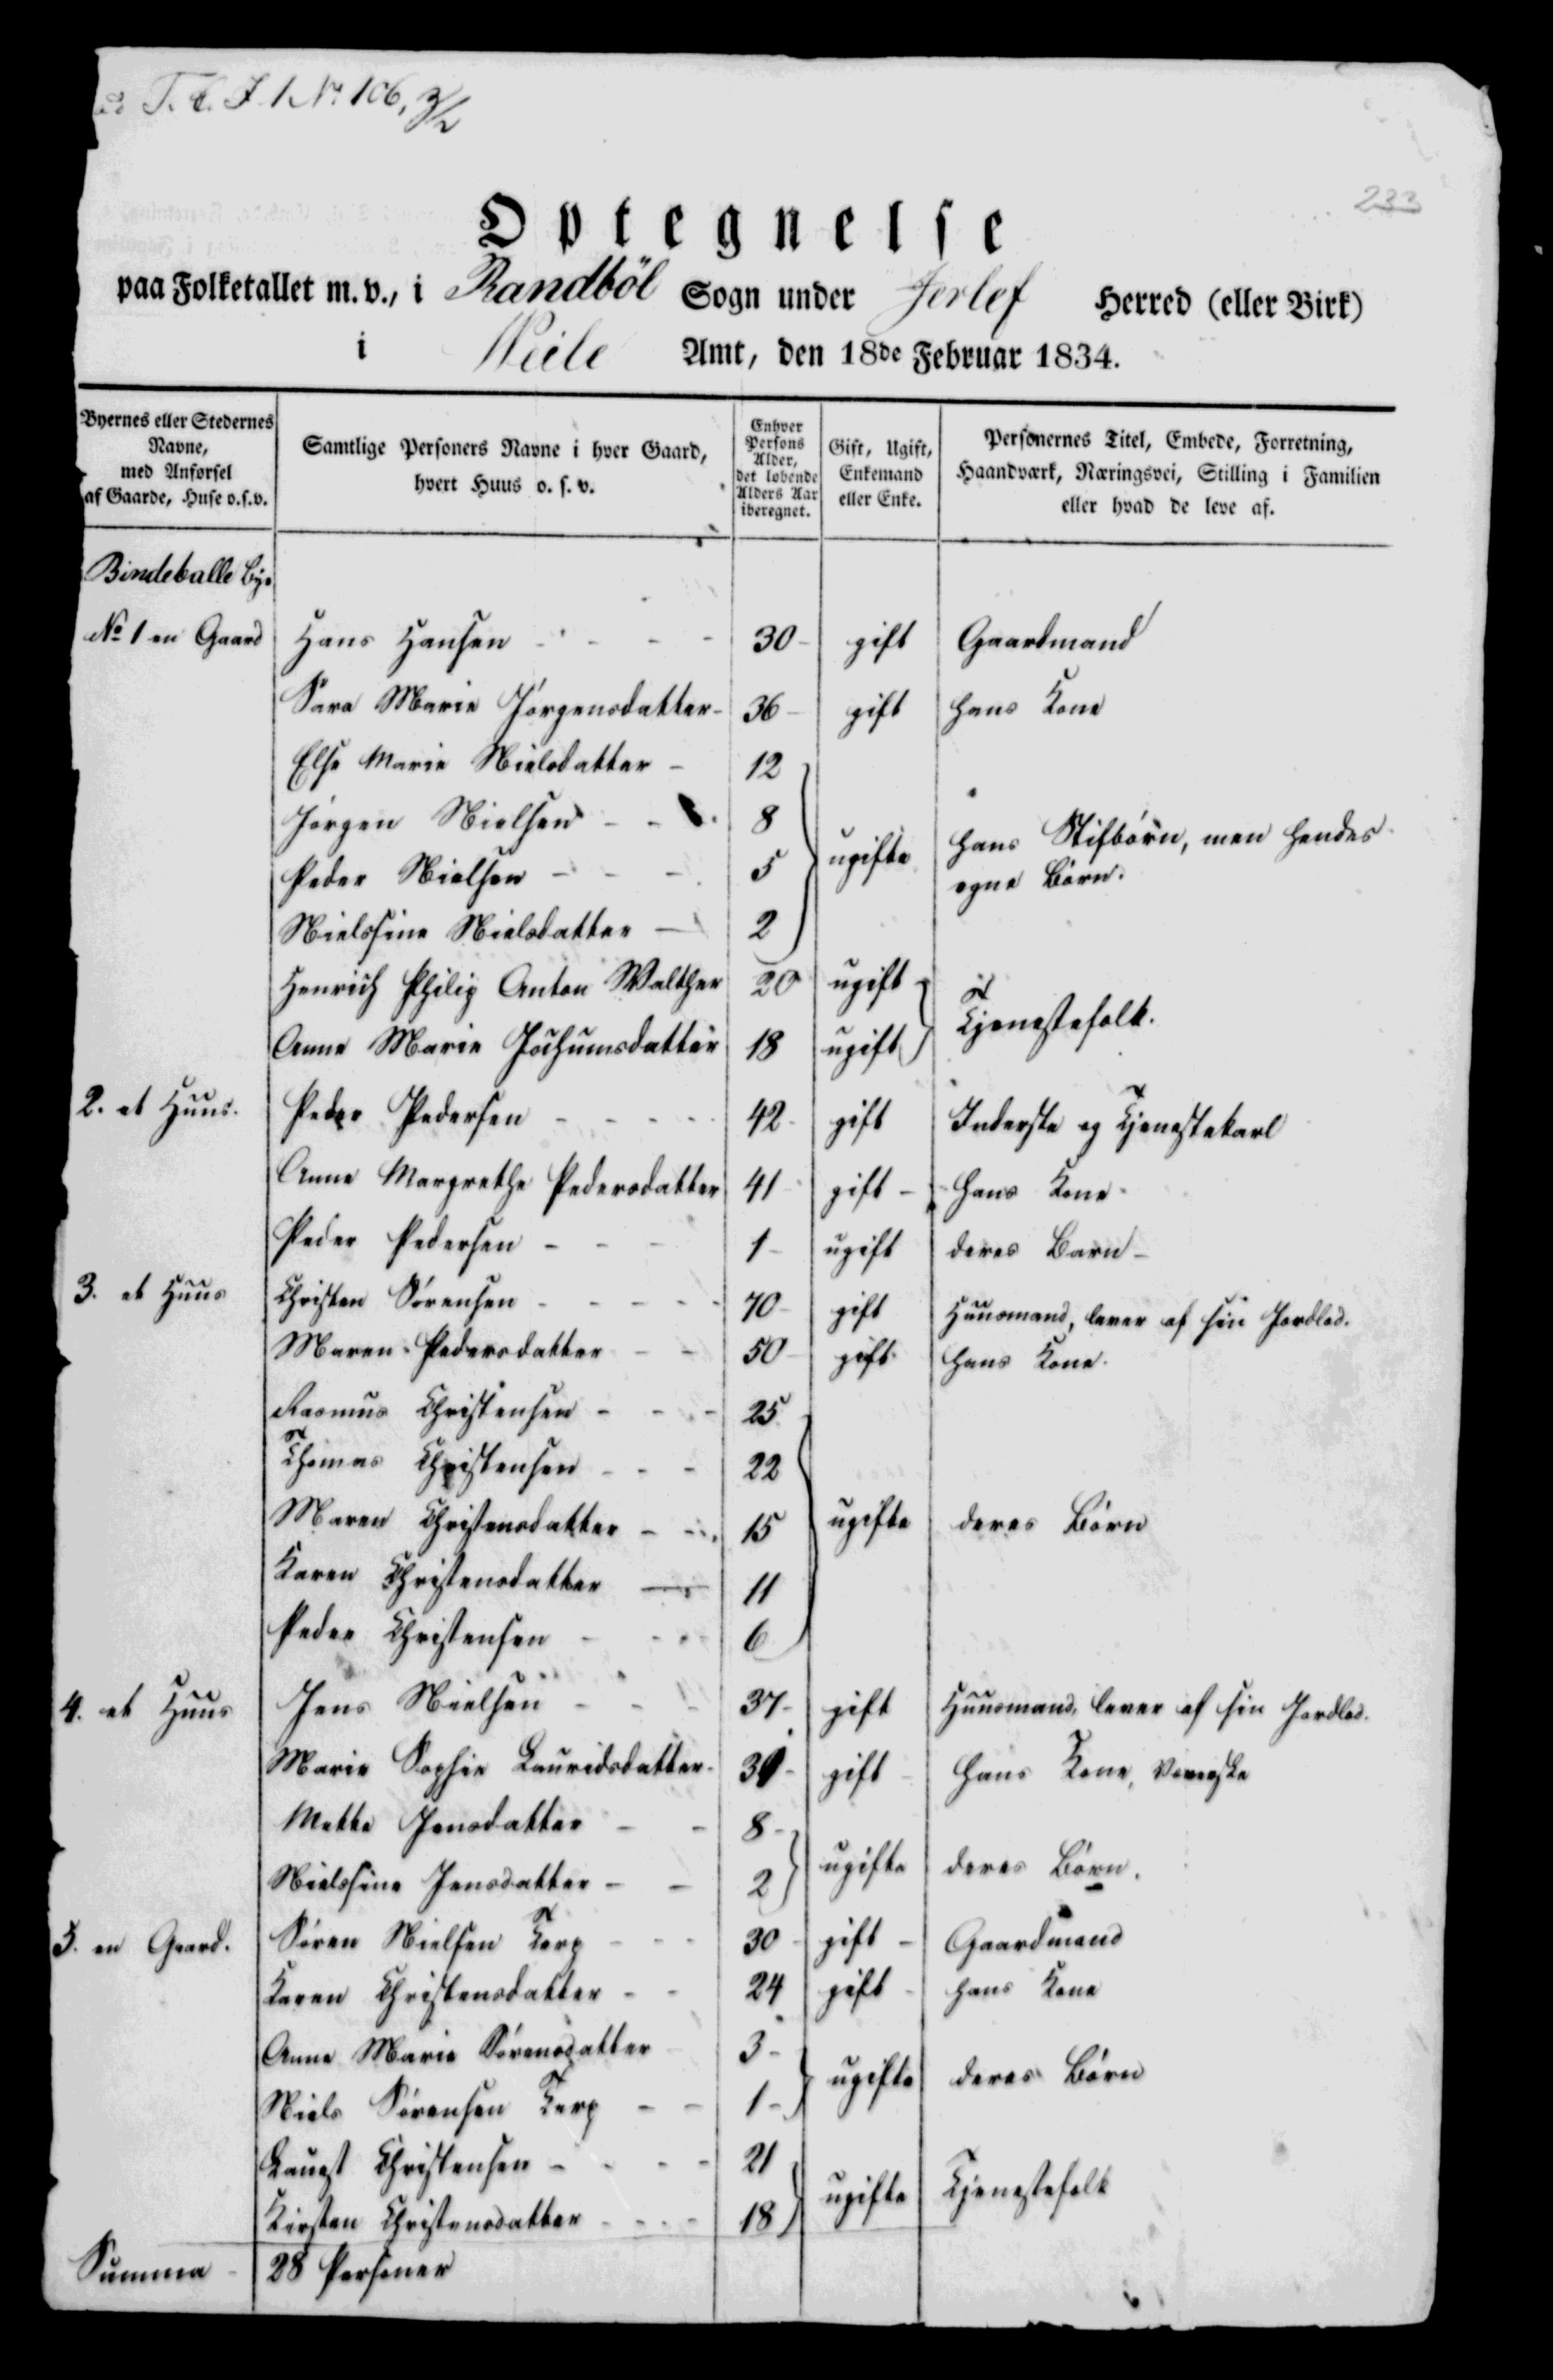 T. C. J. 1 No 106, 3/2
233
Optegnelse
paa Folketallet m. v., i Randböl Sogn under Jerlef Herred (eller Birk)
i Weile Amt, den 18de Februar 1834.
Byernes eller Stedernes Navne, med Anførsel af Gaarde, Huse o.s.v. Samtlige Personers Navne i hver Gaard, hvert Huus o. s. v. Enhver Persons Alder, det løbende Alders Aar iberegnet. Gift, Ugift, Enkemand eller Enke. Personernes Titel, Embede, Forretning, Haandværk, Næringsvei, Stilling i Familien eller hvad de leve af.
Bindeballe Bye
No 1 en Gaard Hans Hansen - - - - 30 - gift Gaardmand
Sara Marie Jörgensdatter - 36 - gift hans Kone
Else Marie Nielsdatter - 12
Jörgen Nielsen - - 8
ugifte hans Stifbörn, men hendes
Peder Nielsen - - - 5
egne Börn.
Nielsine Nielsdatter - 2
Henrich Philip Anton Walther 20 ugift
Tjenestefolk.
Anne Marie Jochumsdatter 18 ugift
2. et Huus. Peder Pedersen - - - - 42 - gift Inderste og Tjenestekarl
Anne Margrethe Pedersdatter 41 - gift - hans Kone
Peder Pedersen - - - 1 - ugift deres Barn -
3. et Huus Christen Sörensen - - - - 70 - gift Huusmand, lever af sin Jordlod.
Maren Pedersdatter - - 50 - gift hans Kone.
Rasmus Christensen - - - 25
Thomas Christensen - - - 22
Maren Christensdatter - - 15 ugifte deres Börn
Karen Christensdatter - 11
Peder Christensen - - - 6
4. et Huus Jens Nielsen - - - 37 - gift Huusmand, lever af sin Jordlod.
Marie Sophie Lauridsdatter - 39 - gift - hans Kone, Væverske
Mette Jensdatter - - 8 -
ugifte deres Börn.
Nielsine Jensdatter - - 2
5. en Gaard. Sören Nielsen Terp - - - 30 - gift - Gaardmand
Karen Christensdatter - - 24 gift - hans Kone
Anne Marie Sörensdatter 3 -
ugifte deres Börn
Niels Sörensen Terp - - 1 -
Laugst Christensen - - - - 21
ugifte Tjenestefolk
Kirsten Christensdatter - - - - 18
Summa - 28 Personer